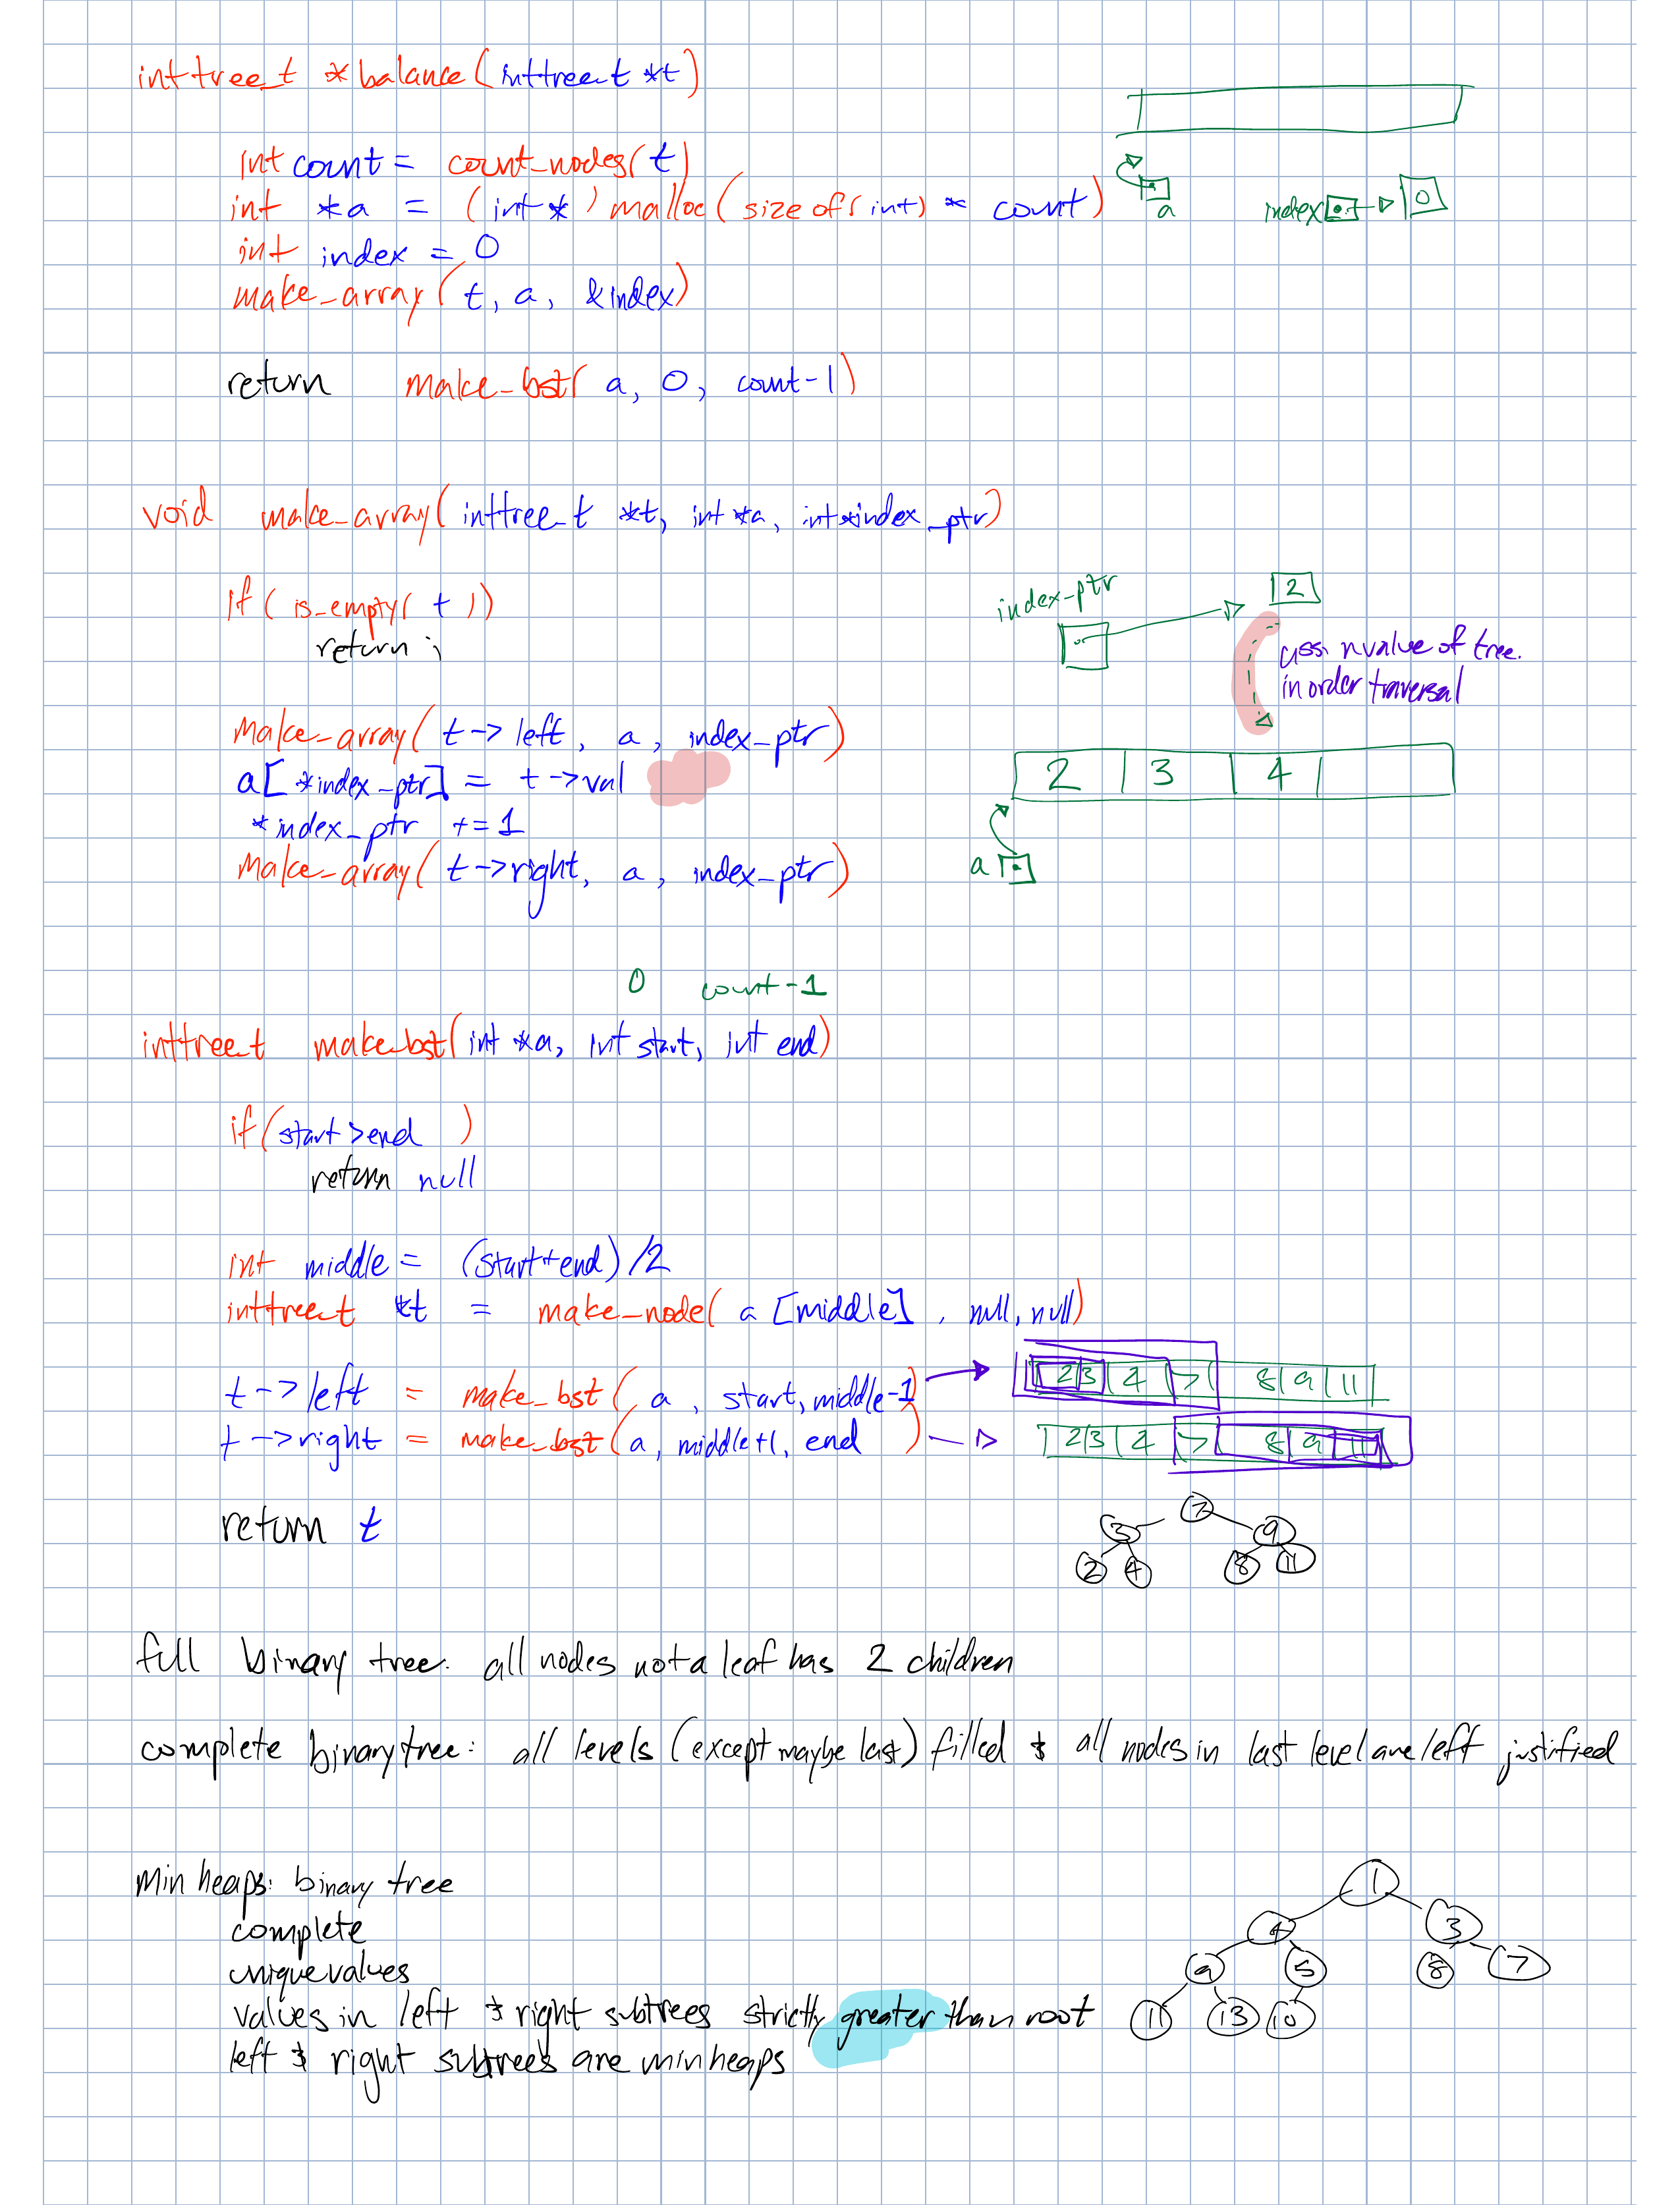 inttree_t *balance(inttree_t *t)
int count = count_nodes(t)
int *a = (int *) malloc(sizeof(int) * count)
int index = 0
make_array(t, a, &index)
return make_bst(a, 0, count-1)
a
index 0
void make_array(inttree_t *t, int *a, int *index_ptr)
if (is_empty(t))
return;
make_array(t->left, a, index_ptr)
a[*index_ptr] = t->val
*index_ptr += 1
make_array(t->right, a, index_ptr)
index_ptr
2
assi nvalue of tree.
in order traversal
2 3 4
a
0 count-1
inttree_t make_bst(int *a, int start, int end)
if (start > end)
return null
int middle = (start+end)/2
inttree_t *t = make_node(a[middle], null, null)
t->left = make_bst(a, start, middle-1)
t->right = make_bst(a, middle+1, end)
return t
2 3 4 7 8 9 11
2 3 4 7 8 9 11
7
3 9
2 4 8 11
full binary tree: all nodes not a leaf has 2 children
complete binary tree: all levels (except maybe last) filled & all nodes in last level are left justified
min heaps: binary tree
complete
unique values
values in left & right subtrees strictly greater than root
left & right subtrees are min heaps
1
4 3
9 5 8 7
11 13 10